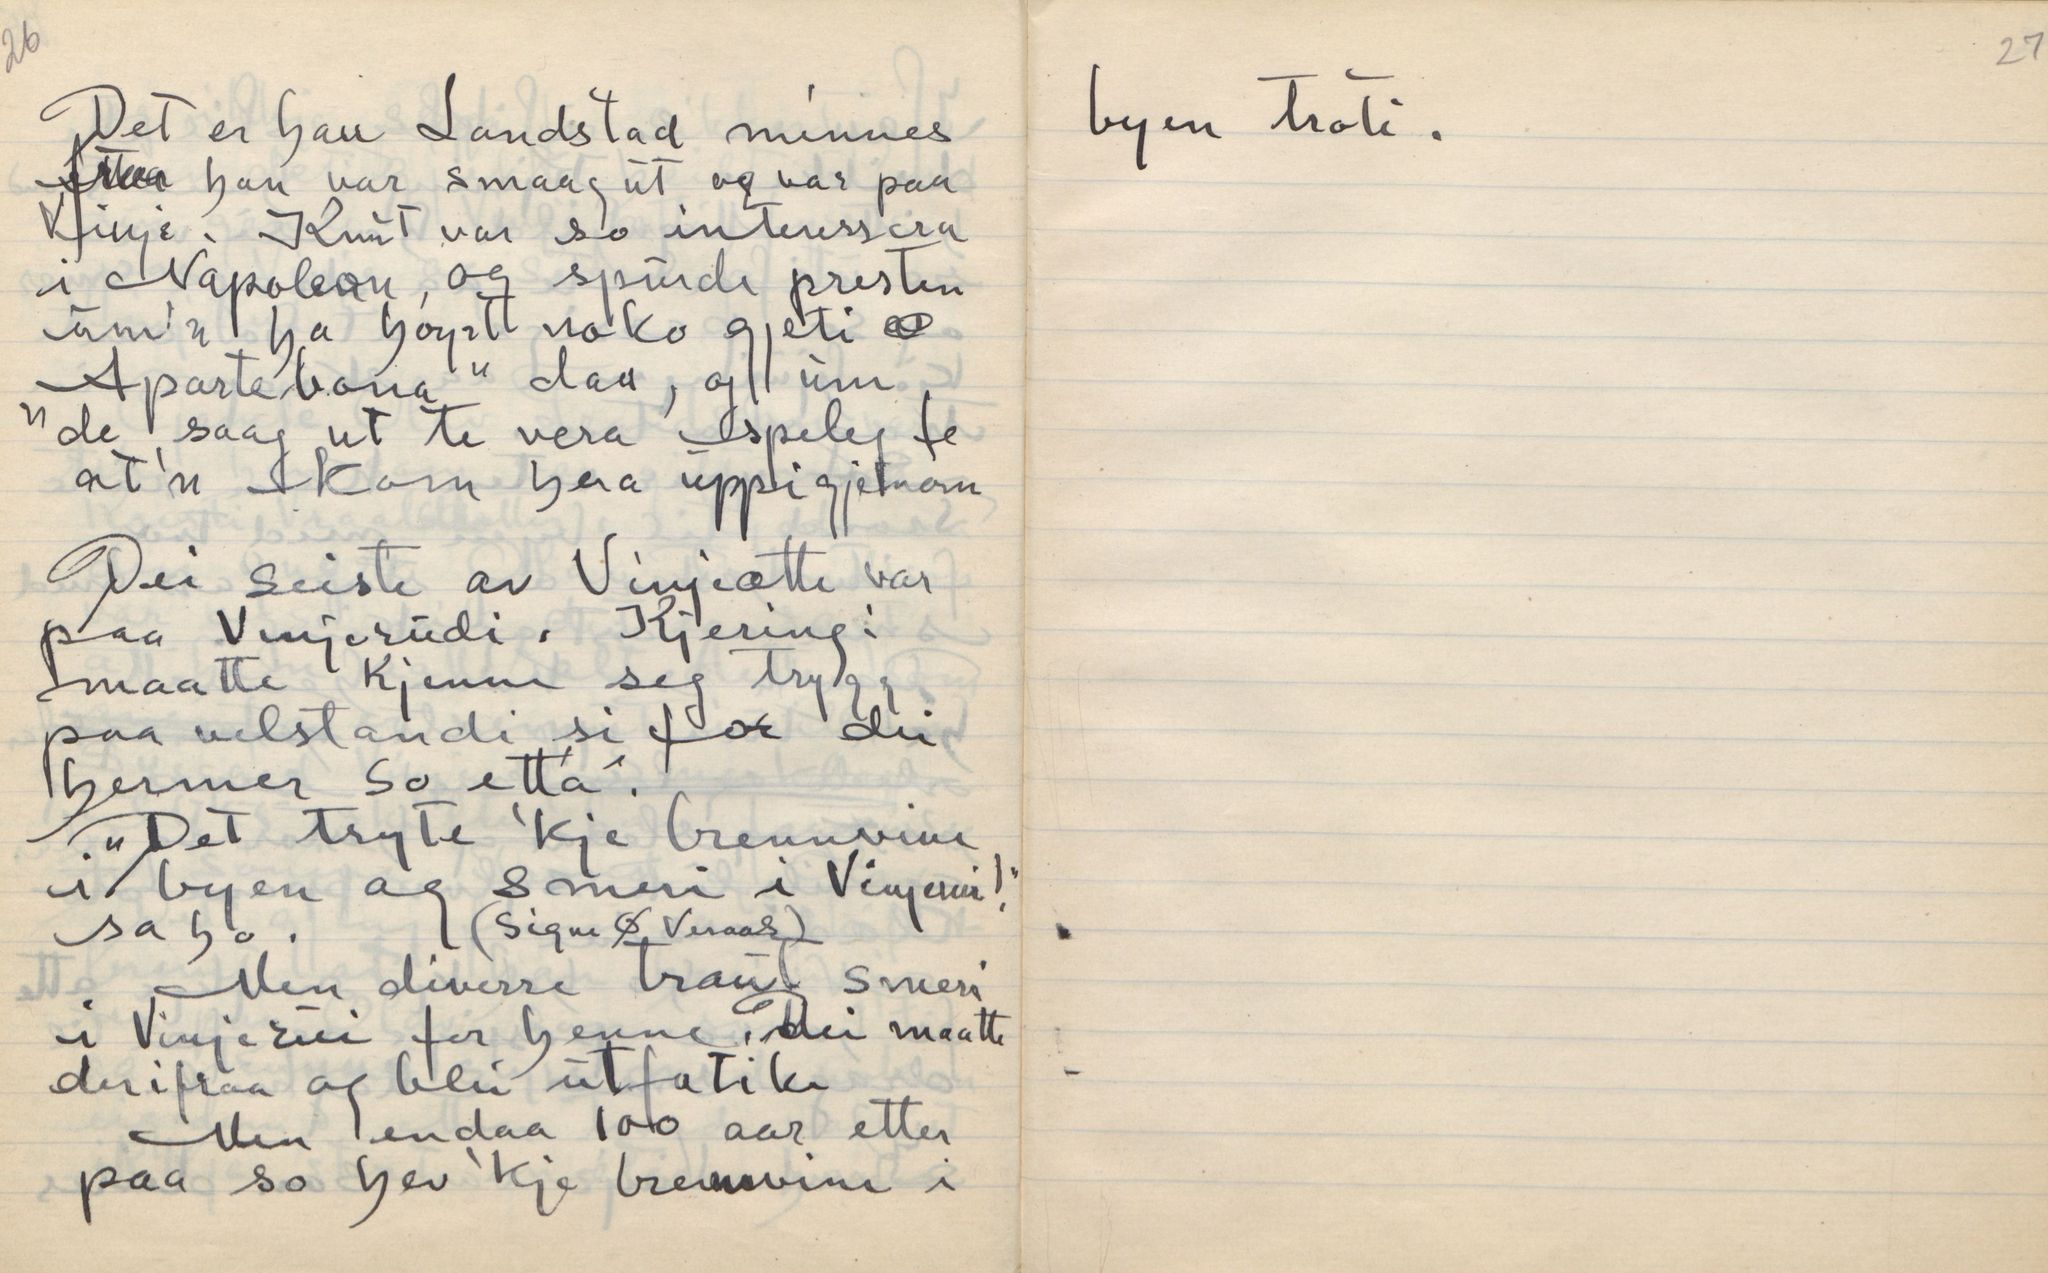 26
Det er han Landstad minnes
fraa han var smaagut og var paa
Vinje. Knut var so interessera
i Napoleon, og spurde presten
um'n ha höyrt noko gjeti
Apartebona" daa, og um
"de saag ut te vera speleg fe
at'n kom hera uppigjenom
Dei seiste av Vinjeætte var
paa Vinjerudi. Kjeringi
maatte kjenne seg trygg
paa velstandi si for dei
hermer so etta.
"Det tryte 'kje brennvine
i byen og smeri i Vinjerui!"
sa ho. (Signe Ø. Veraas)
Men diverre traug smeri
i Vinjerui for henne, dei maatte
derifraa og blei utfatike
Men endaa 100 aar etter
paa so hev 'kje brennvine i
27
byen troti.